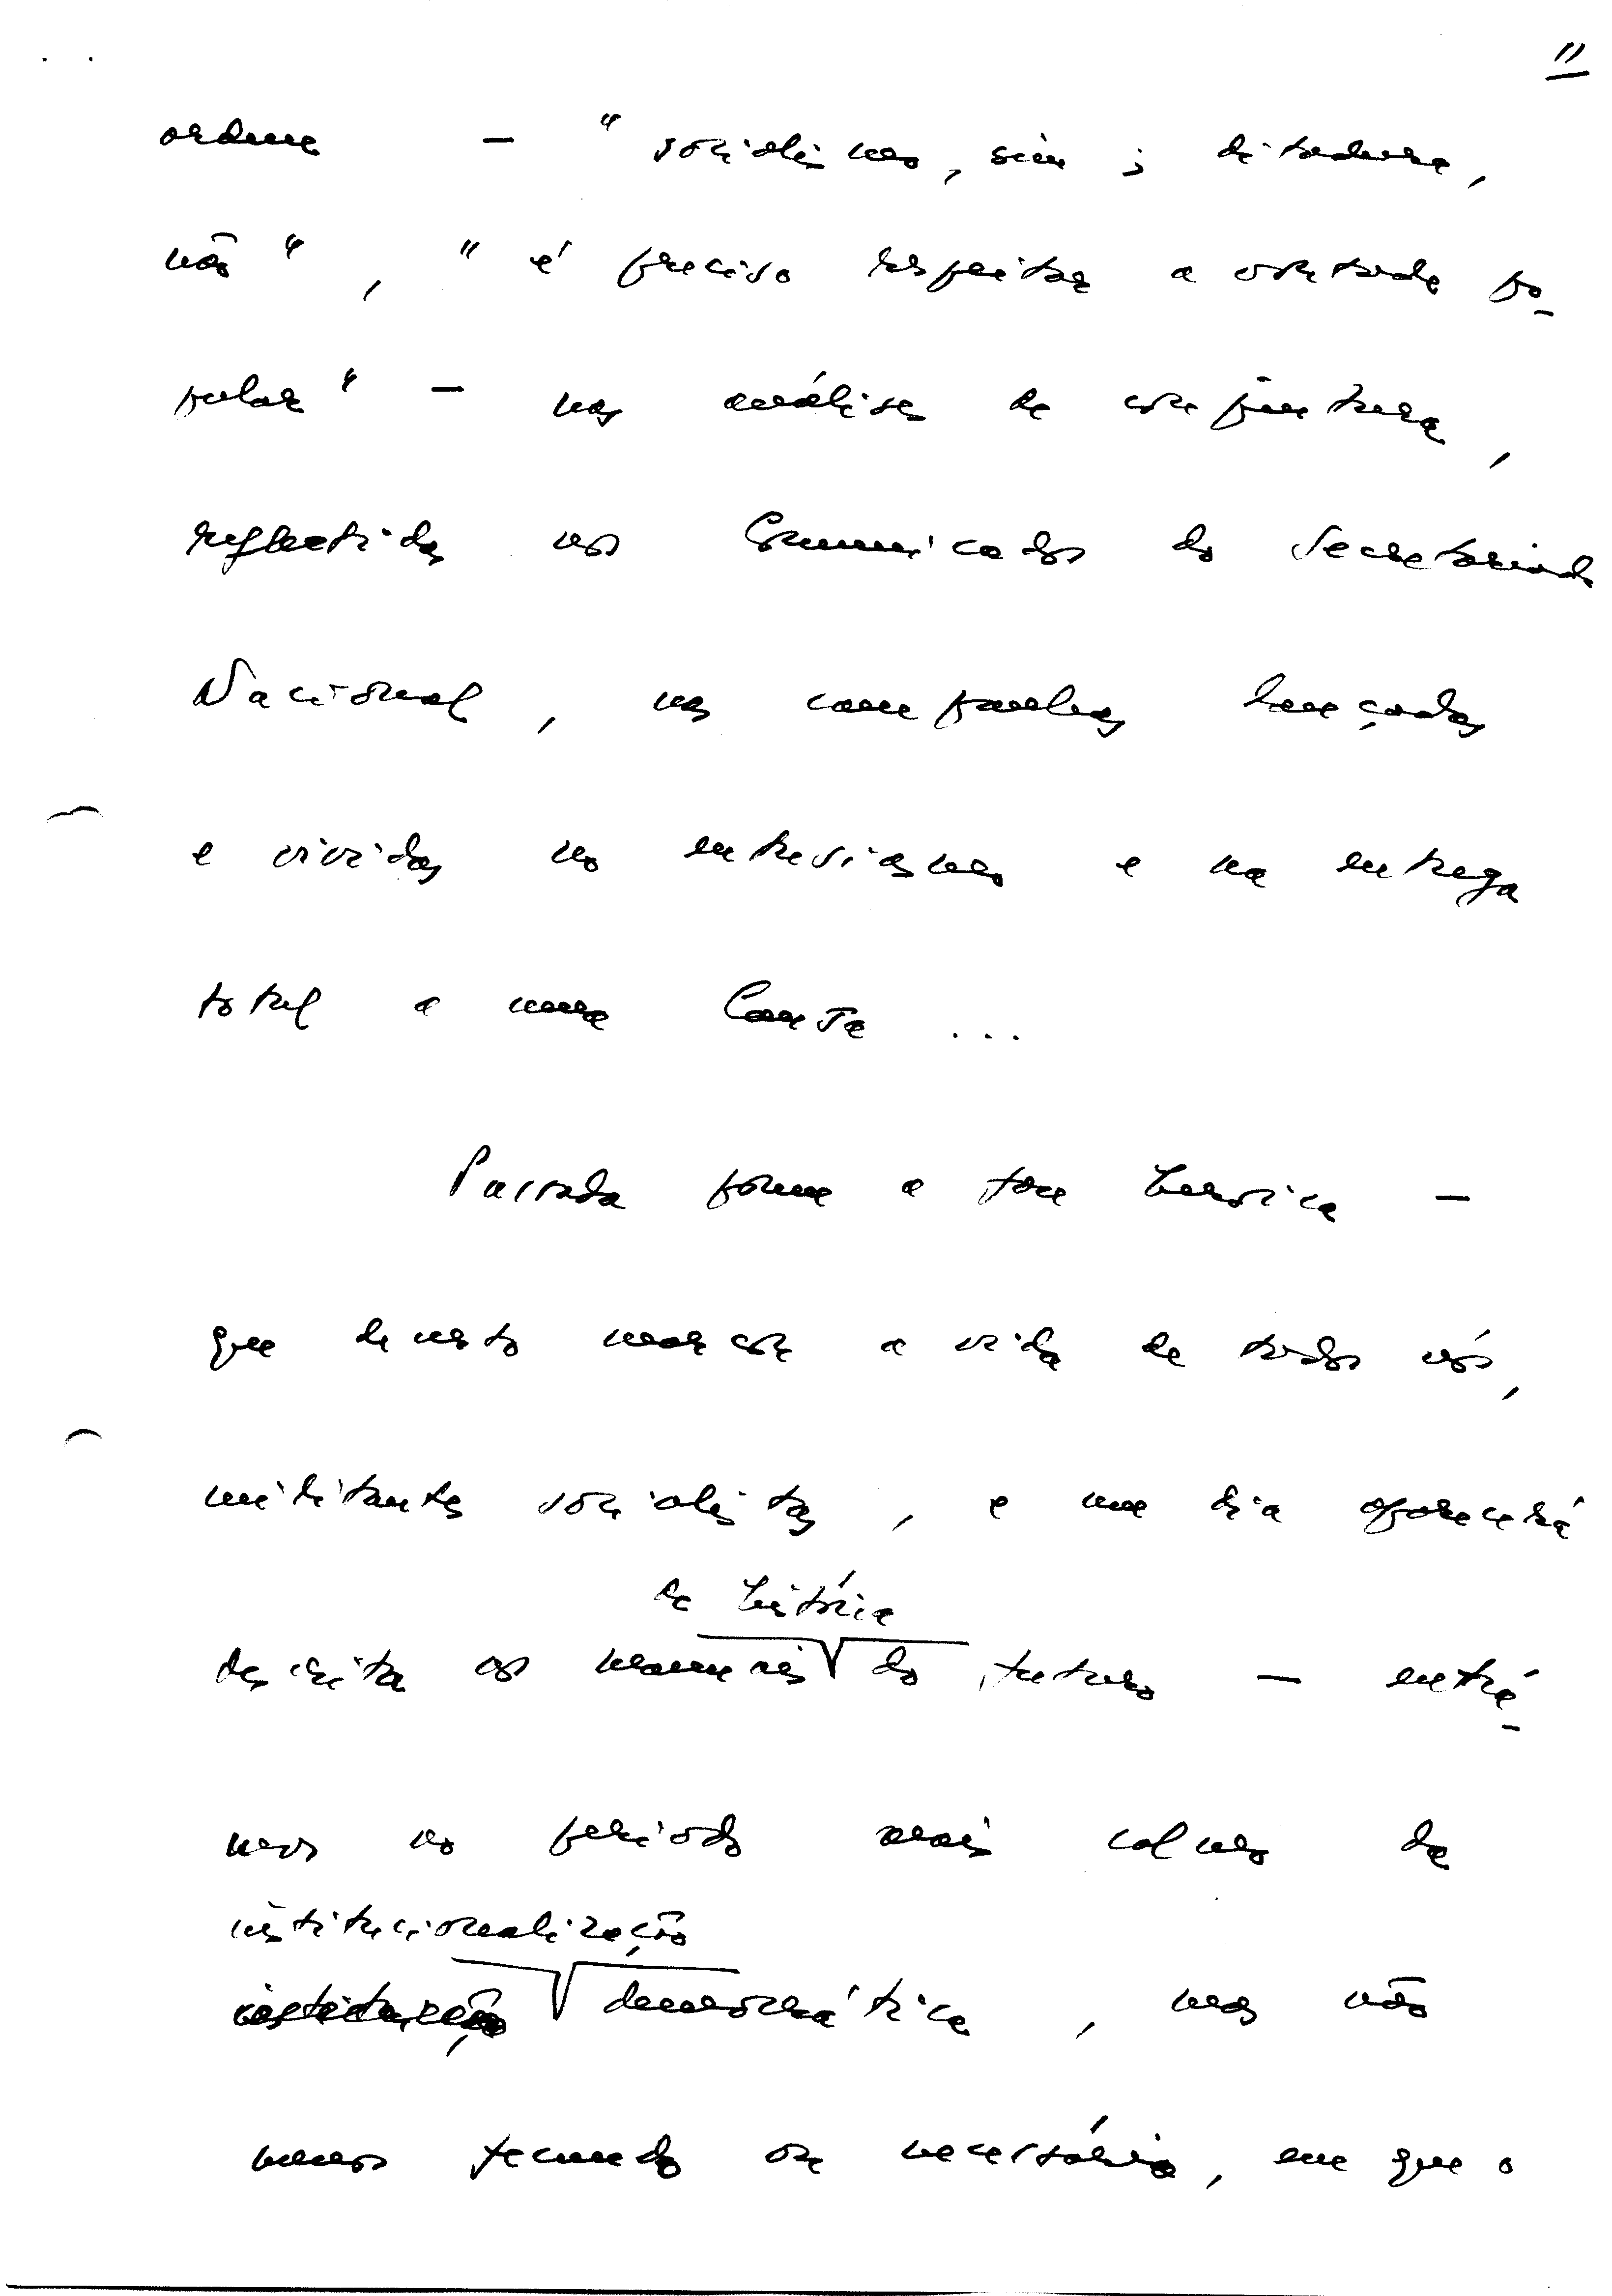 11
ordem — "socialismo, sim; ditadura,
não", "é preciso respeitar a vontade po-
pular" — nas análises de conjuntura,
reflectidas nos Comunicados do Secretariado
Nacional, nas campanhas lançadas
e vividas no entusiasmo e na entrega
total a uma Causa ...
Passada porém a fase heroica —
que de resto marcou a vida de todos nós,
militantes socialistas, e um dia aparecerá
de história
descrita nos manuais do futuro — entrá-
mos no período mais calmo da
institucionalização
institucão democrática, mas não
menos fecundo ou necessário, em que o